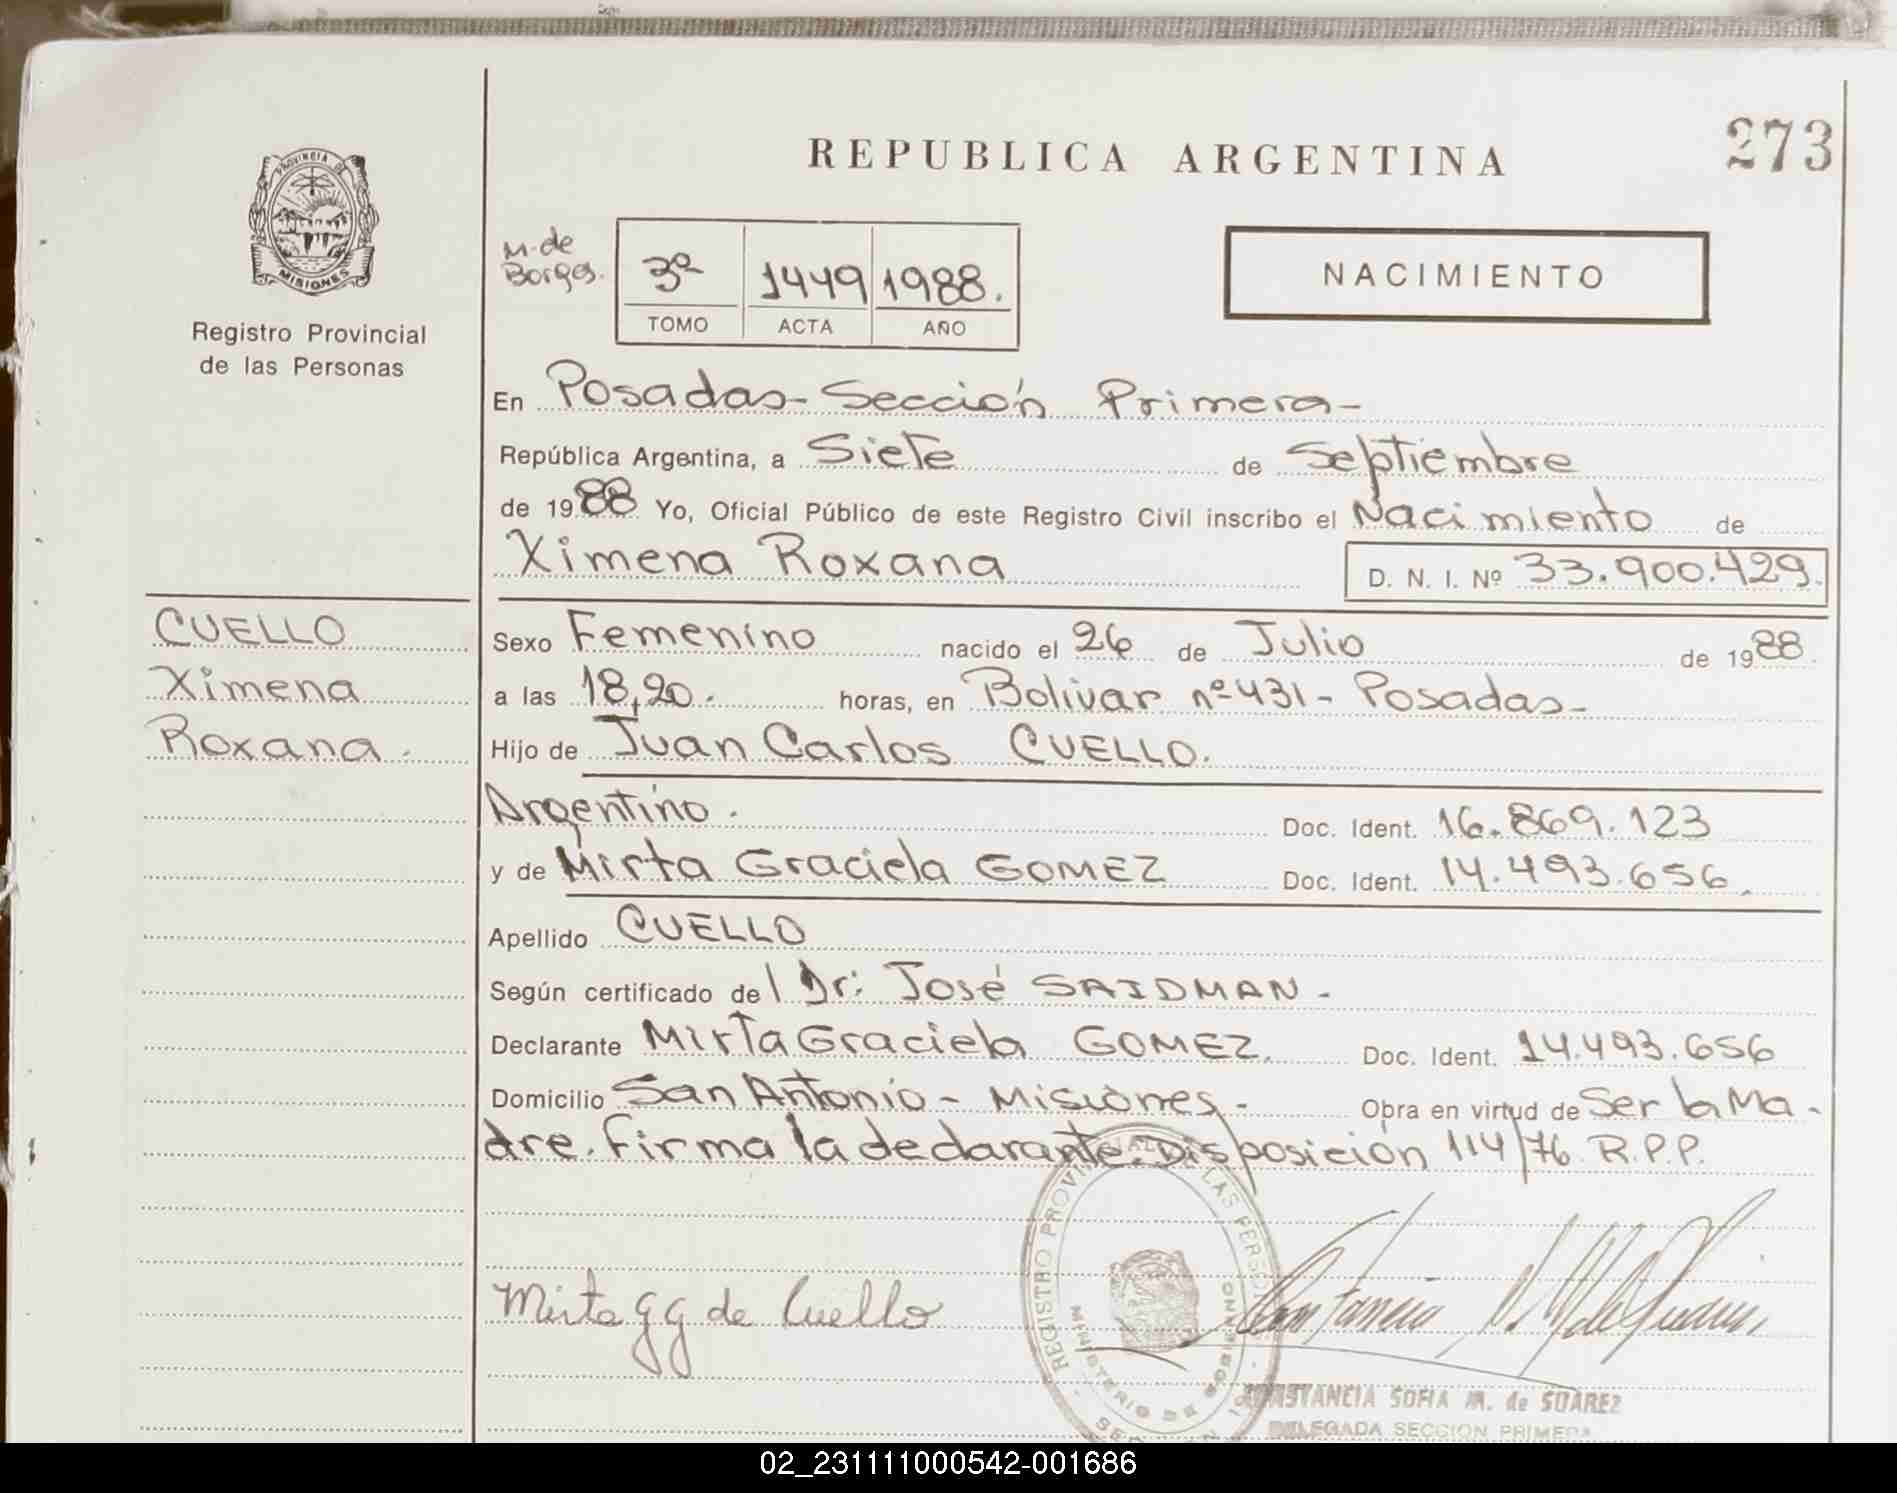 REPUBLICA ARGENTINA
273
PROVINCIA DE
MISIONES
Registro Provincial
de las Personas
M. de
Borges.
3º 1449 1988.
TOMO ACTA AÑO
NACIMIENTO
En Posadas - Sección Primera -
República Argentina, a Siete de Septiembre
de 1988 Yo, Oficial Público de este Registro Civil inscribo el Nacimiento de
Ximena Roxana D. N. I. Nº 33.900.429.
CUELLO
Ximena
Roxana.
Sexo Femenino nacido el 26 de Julio de 1988
a las 18,20. horas, en Bolivar nº 431 - Posadas -
Hijo de Juan Carlos CUELLO.
Argentino. Doc. Ident. 16.869.123
y de Mirta Graciela GOMEZ Doc. Ident. 14.493.656.
Apellido CUELLO
Según certificado del Dr: José SAIDMAN -
Declarante Mirta Graciela GOMEZ. Doc. Ident. 14.493.656
Domicilio San Antonio - Misiones - Obra en virtud de Ser la Ma-
dre. Firma la declarante. Disposición 114/76 R.P.P.
REGISTRO PROVINCIAL DE LAS PERSONAS
MINISTERIO DE
Mirta G G de Cuello
CONSTANCIA SOFIA M. de SUAREZ
DELEGADA SECCION PRIMERA
02_231111000542-001686